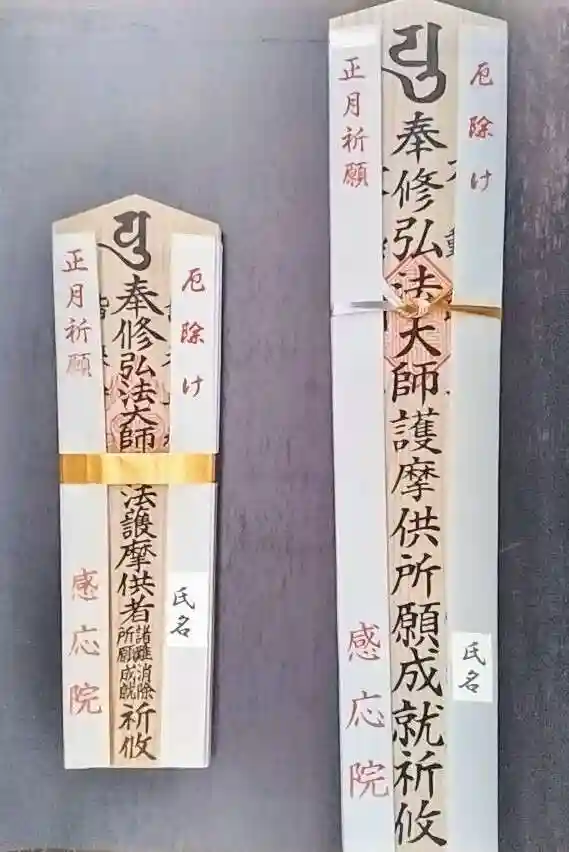 厄除け
奉修弘法大師護摩供所願成就祈攸
正月祈願
感応院
氏名
厄除け
奉修弘法大師
法護摩供者
諸難消除
所願成就
祈攸
正月祈願
感応院
氏名